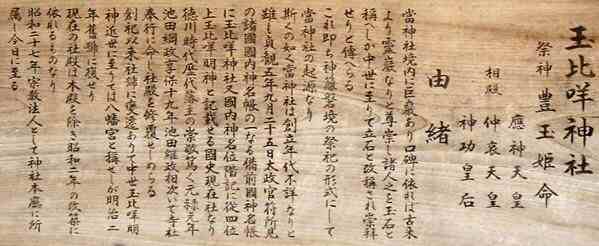 玉比咩神社
祭神 豊玉姫命
相殿 應神天皇
仲哀天皇
神功皇后
由緒
當神社境内に巨巌あり口碑に依れば古来
より霊巌なりと尊崇し諸人之を玉石と
稱へしが中世に至りて立石と改稱され崇拜
せりと傳へらる
これ即ち神籬磐境の祭祀の形式にして
當神社の起源なり
斯くの如く當神社は創立年代不詳なりと
雖も貞観五年九月二十五日太政官符所見
の諸國國内神名帳の一なる備前國神名帳
に玉比咩神社又國内神名位階記に從四位
上玉比咩明神と記載せる國史現在社なり
徳川時代歴代藩主の崇敬篤く元禄元年
池田綱政享保十九年池田継政相次いで寺社
奉行に命じ社殿を修覆せしめらる
創祀以来社號に変遷ありて中世玉比咩明
神近世に至りては八幡宮と稱せしが明治二
年舊號に復せり
現在の社殿は本殿を除き昭和二年の改築に
依れるものなり
昭和二十七年宗教法人として神社本廳に所
属し今日に至る